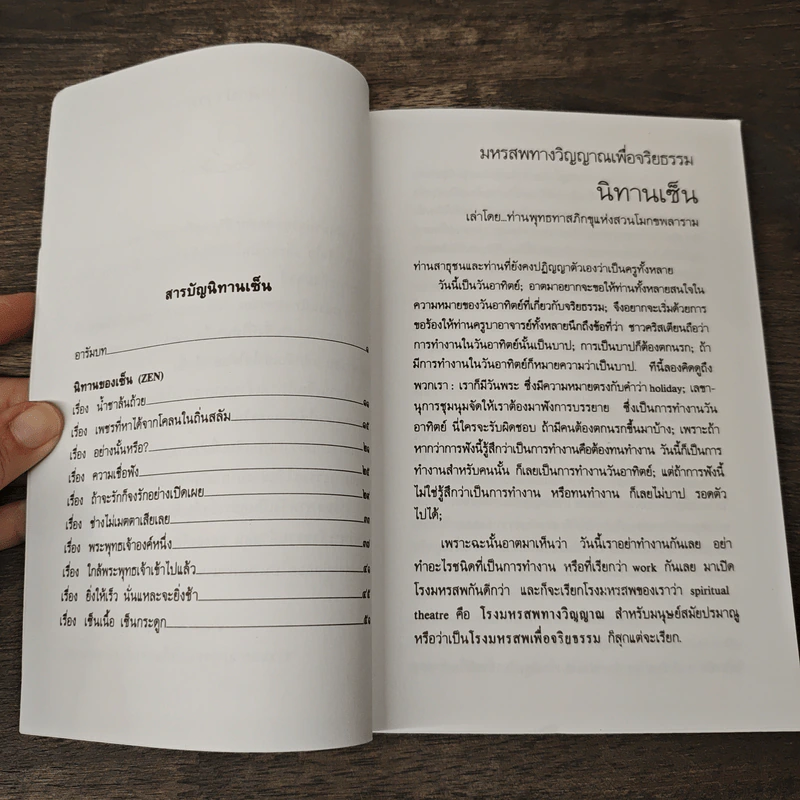 สารบัญนิทานเซ็น
อารัมบท ๑
นิทานของเซ็น (ZEN)
เรื่อง น้ำชาล้นถ้วย ๑๑
เรื่อง เพชรที่หาได้จากโคลนในถิ่นสลัม ๑๕
เรื่อง อย่างนั้นหรือ? ๒๑
เรื่อง ความเชื่อฟัง ๒๕
เรื่อง ถ้าจะรักก็จงรักอย่างเปิดเผย ๒๙
เรื่อง ช่างไม่เมตตาเสียเลย ๓๑
เรื่อง พระพุทธเจ้าองค์หนึ่ง ๓๗
เรื่อง ใกล้พระพุทธเจ้าเข้าไปแล้ว ๔๑
เรื่อง ยิ่งให้เร็ว นั่นแหละจะยิ่งช้า ๔๕
เรื่อง เซ็นเนื้อ เซ็นกระดูก ๕๑
มหรสพทางวิญญาณเพื่อจริยธรรม
นิทานเซ็น
เล่าโดย...ท่านพุทธทาสภิกขุแห่งสวนโมกขพลาราม
ท่านสาธุชนและท่านที่ยังคงปฏิญญาตัวเองว่าเป็นครูทั้งหลาย
วันนี้เป็นวันอาทิตย์; อาตมาอยากจะขอให้ท่านทั้งหลายสนใจใน
ความหมายของวันอาทิตย์ที่เกี่ยวกับจริยธรรม; จึงอยากจะเริ่มด้วยการ
ขอร้องให้ท่านครูบาอาจารย์ทั้งหลายนึกถึงข้อที่ว่า ชาวคริสเตียนถือว่า
การทำงานในวันอาทิตย์นั้นเป็นบาป; การเป็นบาปก็ต้องตกนรก; ถ้า
มีการทำงานในวันอาทิตย์ก็หมายความว่าเป็นบาป. ทีนี้ลองคิดดูถึง
พวกเรา : เราก็มีวันพระ ซึ่งมีความหมายตรงกับคำว่า holiday; เลขา-
นุการชุมนุมจัดให้เราต้องมาฟังการบรรยาย ซึ่งเป็นการทำงานวัน
อาทิตย์ นี่ใครจะรับผิดชอบ ถ้ามีคนต้องตกนรกขึ้นมาบ้าง; เพราะถ้า
หากว่าการฟังนี้รู้สึกว่าเป็นการทำงานคือต้องทนทำงาน วันนี้ก็เป็นการ
ทำงานสำหรับคนนั้น ก็เลยเป็นการทำงานวันอาทิตย์; แต่ถ้าการฟังนี้
ไม่ใช่รู้สึกว่าเป็นการทำงาน หรือทนทำงาน ก็เลยไม่บาป รอดตัว
ไปได้;
เพราะฉะนั้นอาตมาเห็นว่า วันนี้เราอย่าทำงานกันเลย อย่า
ทำอะไรชนิดที่เป็นการทำงาน หรือที่เรียกว่า work กันเลย มาเปิด
โรงมหรสพกันดีกว่า และก็จะเรียกโรงมหรสพของเราว่า spiritual
theatre คือ โรงมหรสพทางวิญญาณ สำหรับมนุษย์สมัยปรมาณู
หรือว่าเป็นโรงมหรสพเพื่อจริยธรรม ก็สุดแต่จะเรียก.